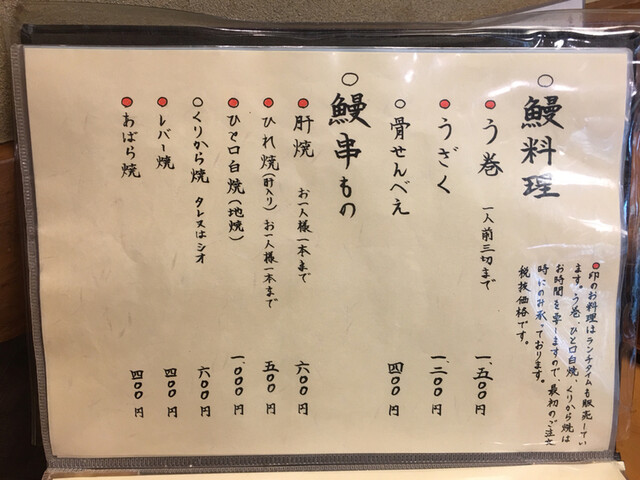 ○鰻料理
●印のお料理はランチタイムも販売してい
ます。う巻、ひと口白焼、くりから焼は
お時間を要しますので、最初のご注文
時にのみ承っております。
税抜価格です。
●う巻 一人前三切まで 一、五〇〇円
●うざく 一、二〇〇円
○骨せんべえ 四〇〇円
○鰻串もの
●肝焼 お一人様一本まで 六〇〇円
●ひれ焼(肝入り)お一人様一本まで 五〇〇円
●ひと口白焼(地焼) 一、〇〇〇円
○くりから焼 タレ又はシオ 六〇〇円
●レバー焼 四〇〇円
●おばら焼 四〇〇円